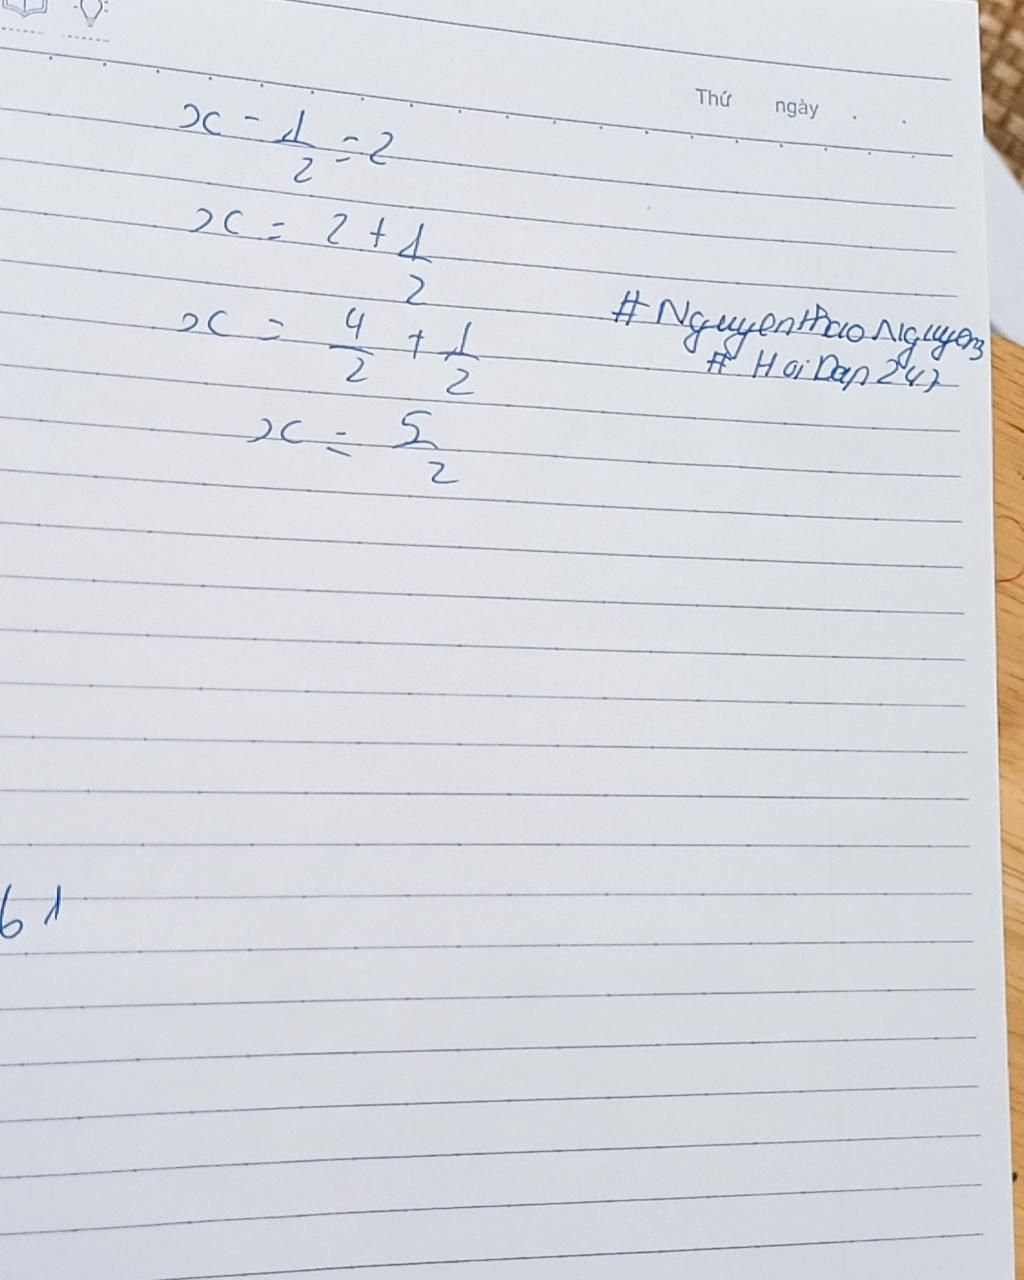 Thứ ngày
x - 1/2 = 2
x = 2 + 1/2
x = 4/2 + 1/2
x = 5/2
#NguyenthaoNguyen
#HoiDap247
61